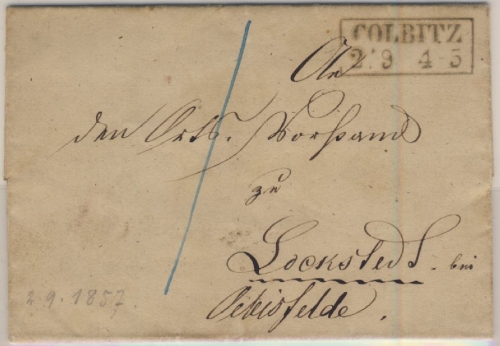 COLBITZ
2/9 4-5
An
den Orts-Vorstand
zu
Lockstedt bei
Oebisfelde.
2.9.1857.